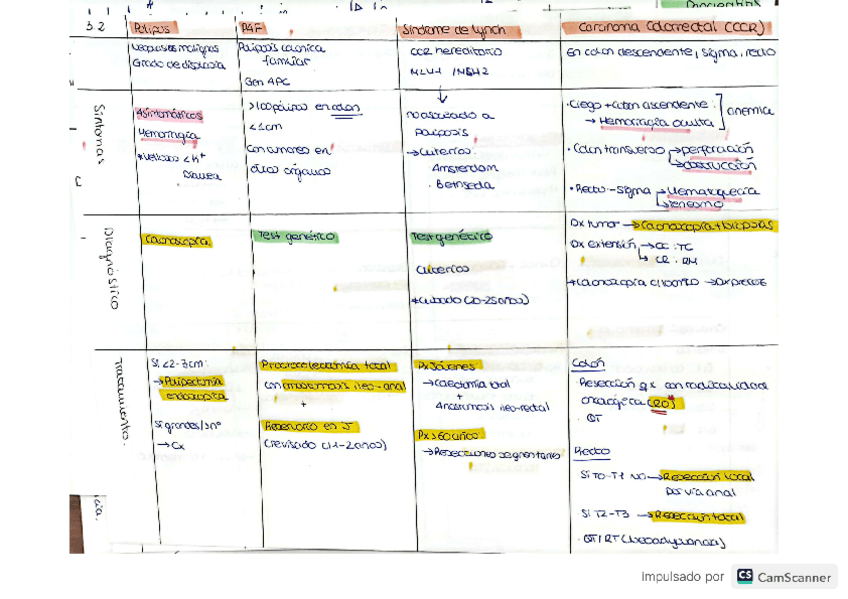 3.2
Pólipos
PAF
Síndrome de Lynch
Carcinoma Colorrectal (CCR)
Grado de displasia
Poliposis colónica
familiar
Gen APC
CCR hereditario
MLH1 / MSH2
En colon descendente, sigma, recto
Síntomas
Asintomáticos
Hemorragia
Diarrea
>100 pólipos en colon
<1cm
Con tumores en
otros órganos
no asociado a
poliposis
→ Criterios
Amsterdam
· Bethesda
· Ciego + colon ascendente:
→ Hemorragia oculta
anemia
· Colon transverso → perforación
→ obstrucción
· Recto-sigma → Hematoquecia
→ tenesmo
Diagnóstico
Colonoscopia
Test genético
Test genético
Criterios
+ Cuidado (20-25 años)
Dx tumor → Colonoscopia + biopsias
Dx extensión → CC: TC
→ CR: RM
Tratamiento
Si <2-3cm:
→ Polipectomía
endoscópica
Si grandes/↑nº
→ Cx
Proctocolectomía total
con anastomosis ileo-anal
+
Reservorio en J
(revisado c/1-2 años)
Px jóvenes:
→ Colectomía total
+
Anastomosis íleo-rectal
Px >60 años:
→ Resecciones segmentarias
Colon
· Resección qx con radicalidad
oncológica (R0)
· QT
Recto
Si T0-T1 N0 → Resección local
por vía anal
Si T2-T3 → Resección total
· QT/RT (neoadyuvancia)
Impulsado por CS CamScanner